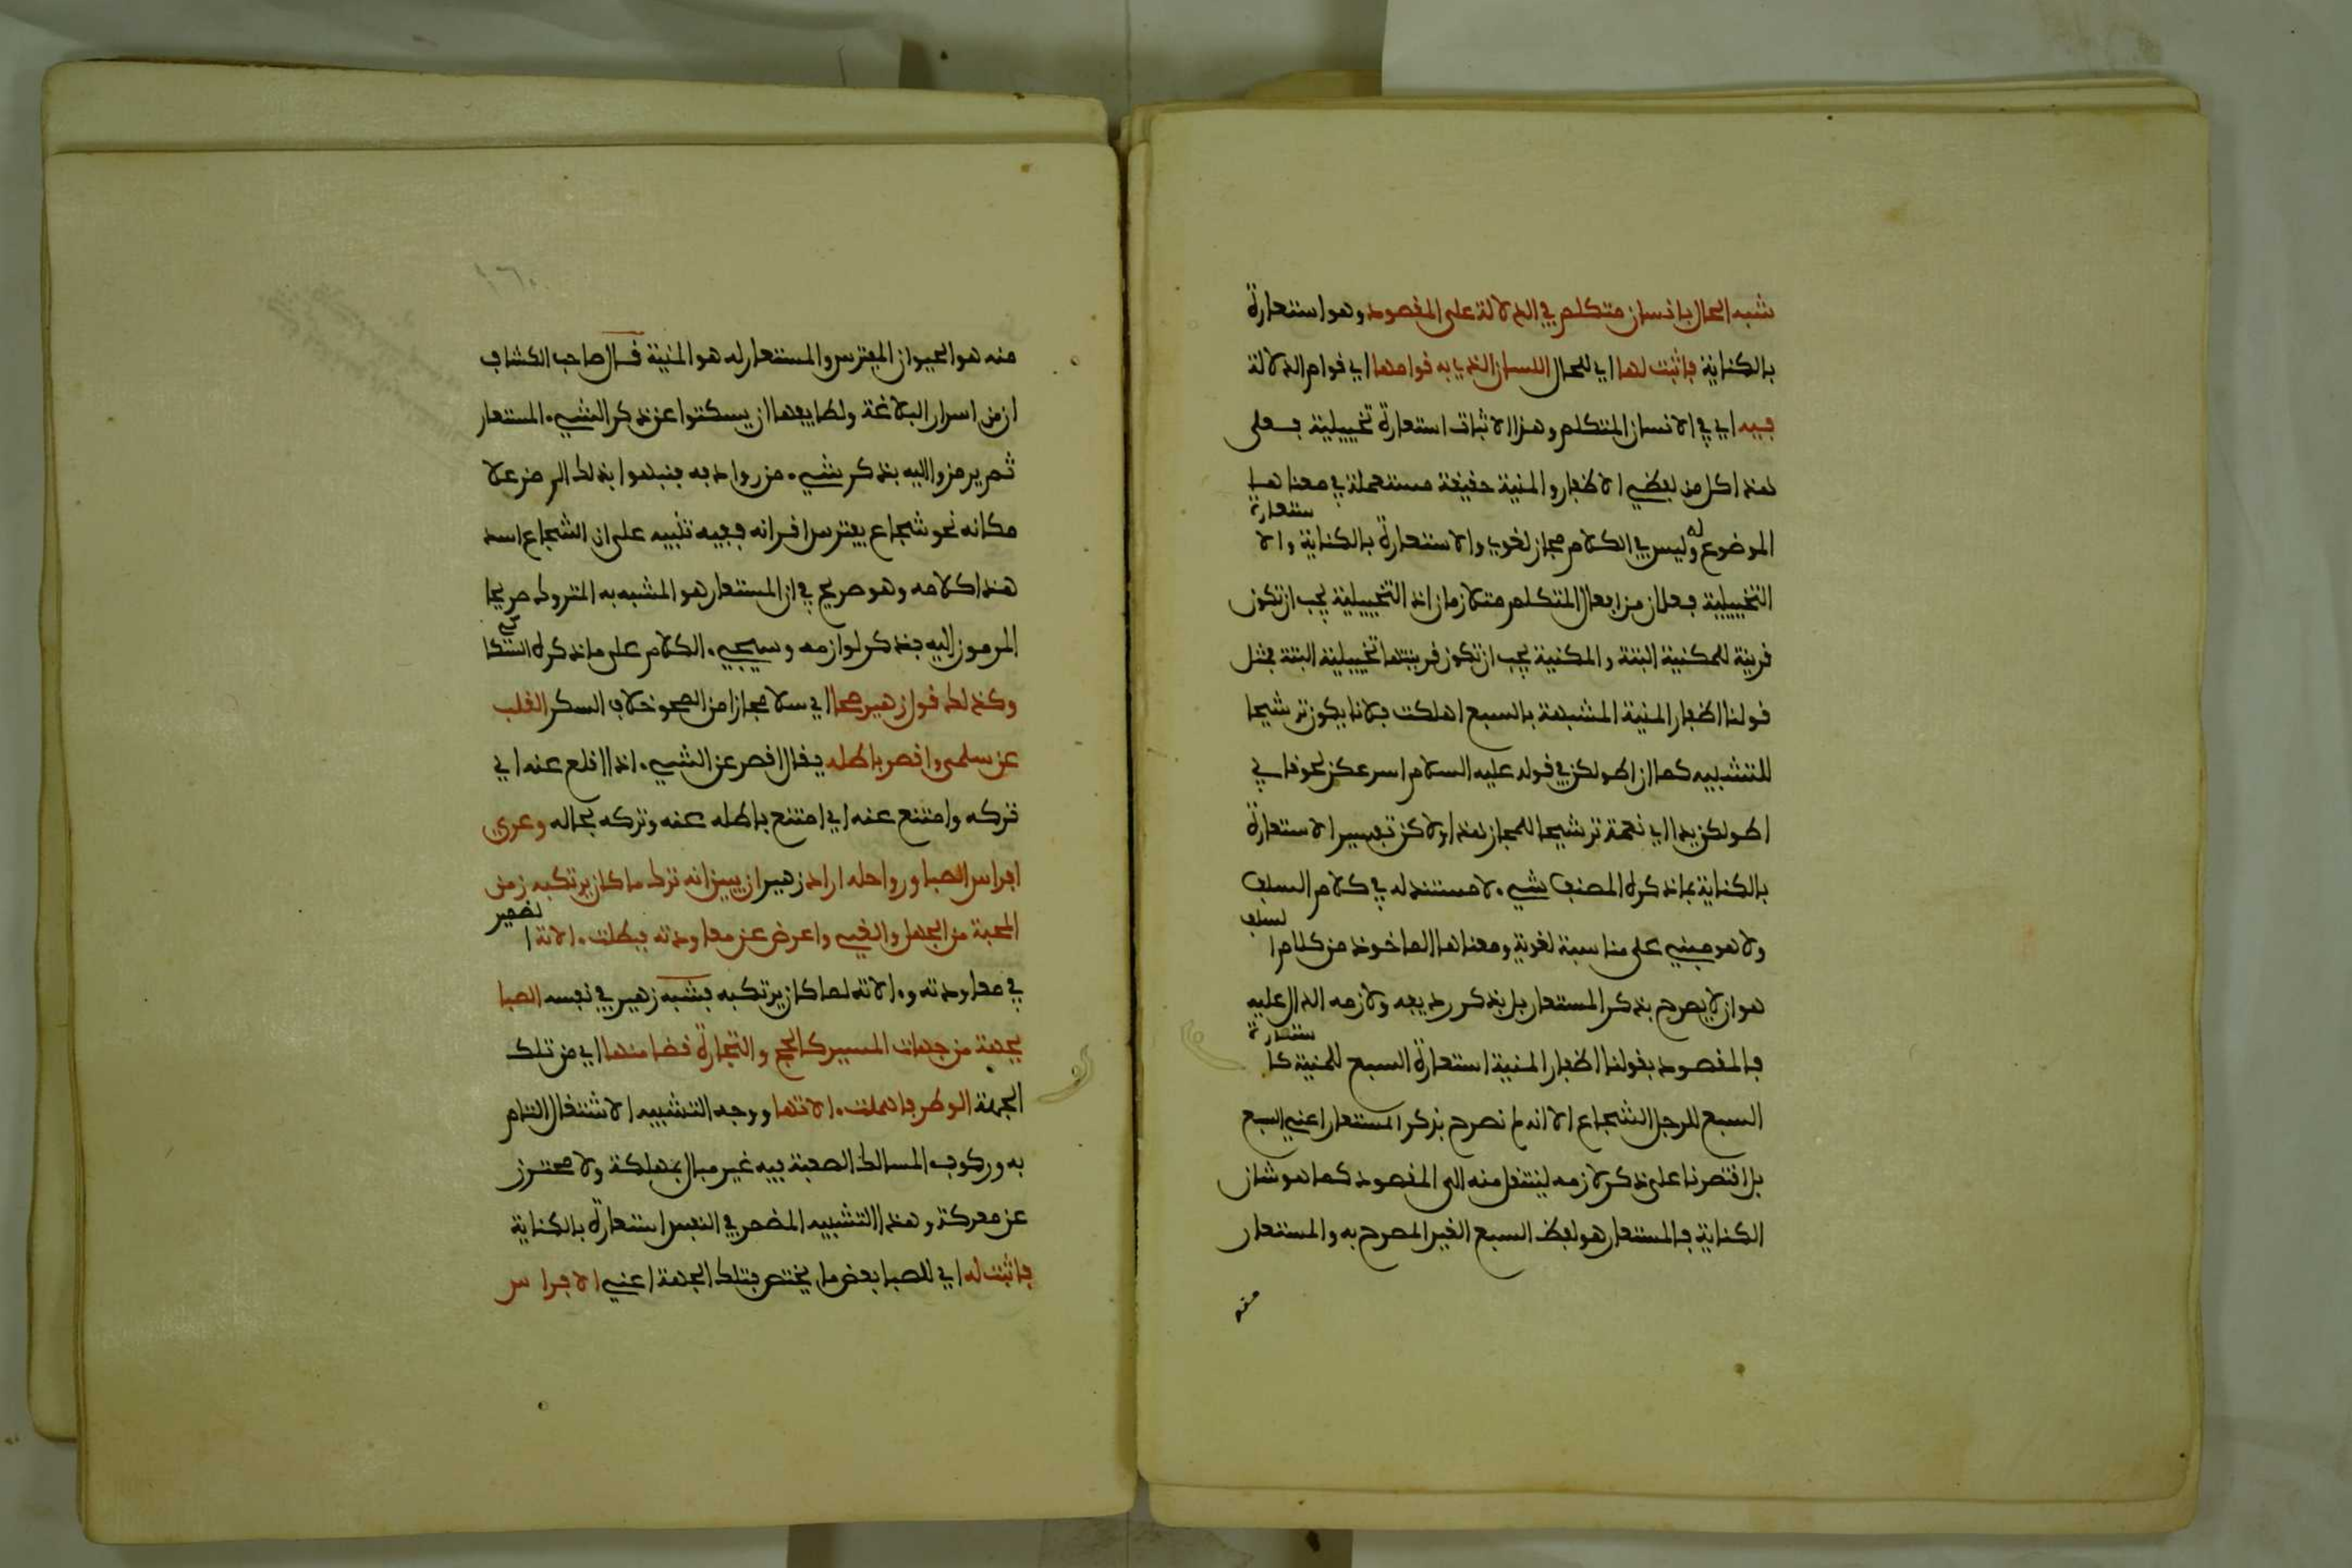 شبه الحال بانسان متكلم في الدلالة على المقصود وهو استعارة
بالكناية فاثبت لها اي للحال اللسان الذي به قوامها اي قوام الدلالة
فيه اي في الانسان المتكلم وهذا الاثبات استعارة تخييلية فعلى
هذا كل من لفظي الاظفار والمنية حقيقة مستعملة في معناها
الموضوع له وليس في الكلام مجاز لغوي والاستعارة بالكناية والاستعارة
التخييلية فعلان من افعال المتكلم متلازمان اذ التخييلية يجب ان تكون
قرينة للمكنية البتة والمكنية يجب ان تكون قرينتها تخييلية البتة فمثل
قولنا اظفار المنية المشبهة بالسبع اهلكت فلانا يكون ترشيحا
للتشبيه كما ان اطولكن في قوله عليه السلام اسرعكن لحوقا بي
اطولكن يدا اي نعمة ترشيحا للمجاز هذا ولاكن تفسير الاستعارة
بالكناية بما ذكره المصنف شيء لا مستند له في كلام السلف
ولا هو مبني على مناسبة لغوية ومعناها الماخوذ من كلام السلف
هو ان لا يصرح بذكر المستعار بل بذكر رديفه ولازمه الدال عليه
فالمقصود بقولنا اظفار المنية استعارة السبع للمنية كاستعارة
السبع للرجل الشجاع الا انه لم نصرح بذكر المستعار اعني السبع
بل اقتصرنا على ذكر لازمه لينتقل منه الى المقصود كما هو شان
الكناية فالمستعار هو لفظ السبع الغير المصرح به والمستعار
منه
منه هو الحيوان المفترس والمستعار له هو المنية قال صاحب الكشاف
ان من اسرار البلاغة ولطايفها ان يسكتوا عن ذكر الشيء المستعار
ثم يرمزوا اليه بذكر شيء من روادفه فينبهوا بذلك الرمز علا
مكانه نحو شجاع يفترس اقرانه ففيه تنبيه على ان الشجاع اسد
هذا كلامه وهو صريح في ان المستعار هو المشبه به المتروك صريحا
المرموز اليه بذكر لوازمه وسيجيء الكلام على ما ذكره السكاكي
وكذلك قول زهير صحا اي سلا مجازا من الصحو خلاف السكر القلب
عن سلمى واقصر باطله يقال اقصر عن الشيء اذا اقلع عنه اي
تركه وامتنع عنه اي امتنع باطله عنه وتركه بحاله وعري
افراس الصبا ورواحله اراد زهير ان يبين انه ترك ما كان يرتكبه زمن
المحبة من الجهل والغي واعرض عن معاودته فبطلت الاته الضمير
في معاودته والاته لما كان يرتكبه فشبه زهير في نفسه الصبا
بجهة من جهات المسير كالحج والتجارة قضا منها اي من تلك
الجهة الوطر فاهملت الاتها ووجه التشبيه الاشتغال التام
به وركوب المسالك الصعبة فيه غير مبال بمهلكة ولا محترز
عن معركة وهذا التشبيه المضمر في النفس استعارة بالكناية
فاثبت له اي للصبا بعض ما يختص بتلك الجهة اعني الافراس